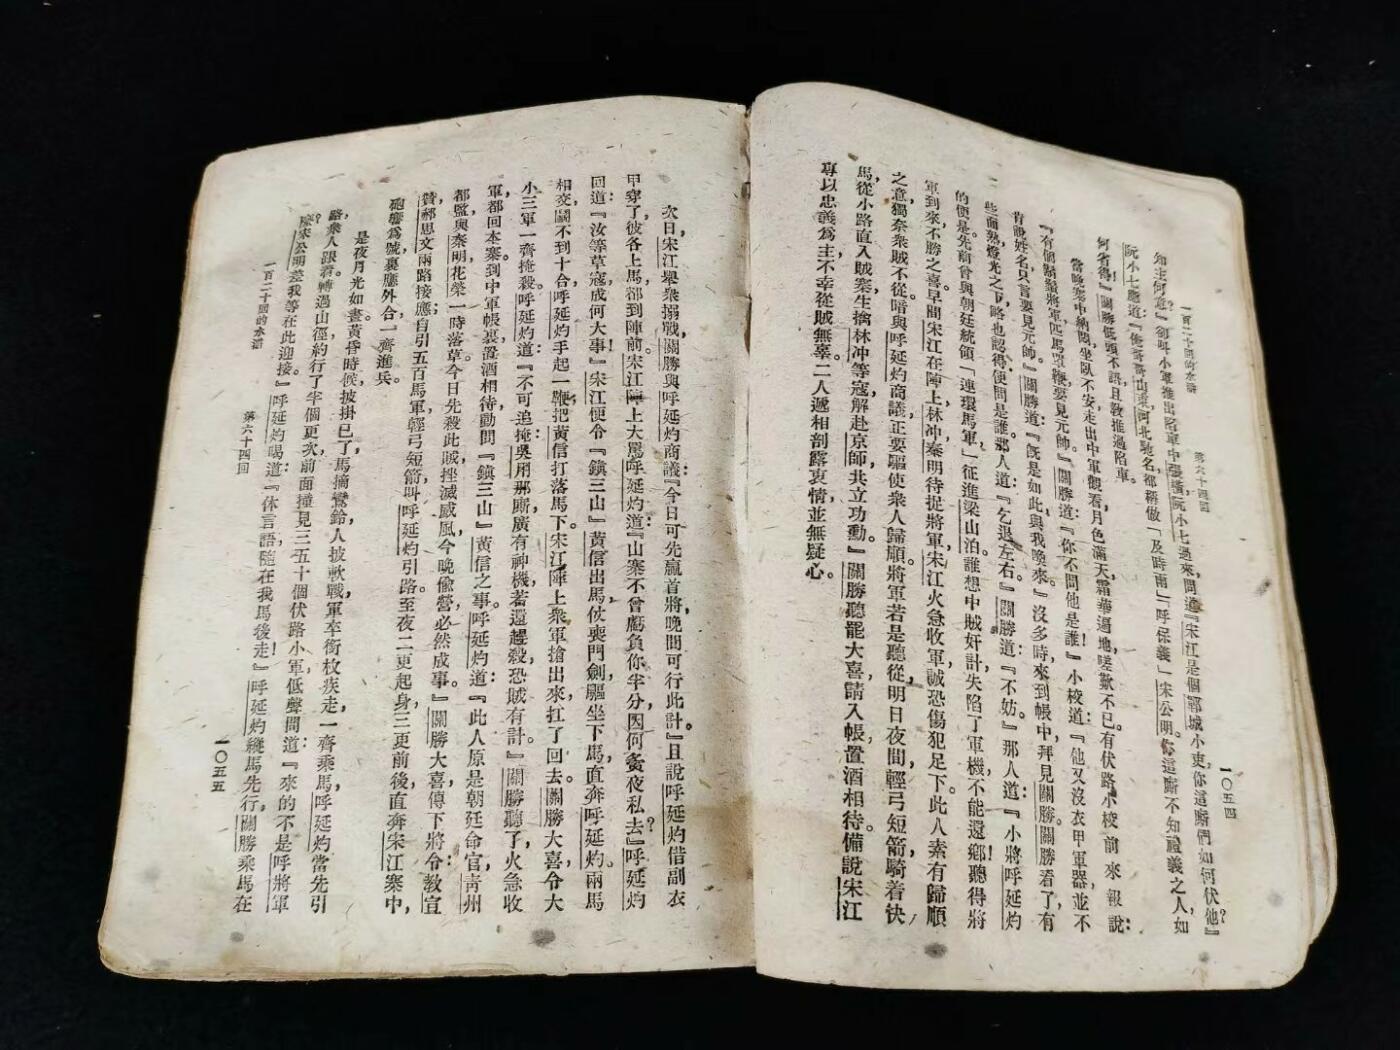 一百二十回的水滸　第六十四回　一〇五四
知主何意？』卻叫小軍推出陷車中張橫阮小七過來，問道：『宋江是個鄆城小吏，你這廝們如何伏他？』
阮小七應道：『俺哥哥山東，河北馳名，都稱做「及時雨」「呼保義」宋公明。你這廝不知禮義之人，如
何省得！』關勝低頭不語，且教推過陷車。
當晚寨中納悶，坐臥不安，走出中軍觀看，月色滿天，霜華遍地，嗟歎不已。有伏路小校前來報說：
『有個鬍鬚將軍，匹馬單鞭，要見元帥。』關勝道：『你不問他是誰！』小校道：『他又沒衣甲軍器，並不
肯說姓名，只言要見元帥。』關勝道：『旣是如此，與我喚來。』沒多時，來到帳中，拜見關勝。關勝看了，有
些面熟，燈光之下，略也認得，便問是誰。那人道：『乞退左右。』關勝道：『不妨。』那人道：『小將呼延灼
的便是。先前曾與朝廷統領「連環馬軍」，征進梁山泊。誰想中賊奸計，失陷了軍機，不能還鄉。聽得將
軍到來，不勝之喜。早間宋江在陣上，林冲，秦明待捉將軍，宋江火急收軍，誠恐傷犯足下。此人素有歸順
之意，獨奈衆賊不從。暗與呼延灼商議，正要驅使衆人歸順。將軍若是聽從，明日夜間，輕弓短箭，騎着快
馬，從小路直入賊寨，生擒林冲等寇，解赴京師，共立功勳。』關勝聽罷大喜，請入帳，置酒相待。備說宋江
專以忠義爲主，不幸從賊無辜。二人遞相剖露衷情，並無疑心。
次日，宋江舉衆搦戰。關勝與呼延灼商議：『今日可先贏首將，晚間可行此計。』且說呼延灼借副衣
甲穿了，彼各上馬，都到陣前。宋江陣上大罵呼延灼道：『山寨不曾虧負你半分，因何夤夜私去？』呼延灼
回道：『汝等草寇，成何大事！』宋江便令「鎭三山」黃信出馬，仗喪門劍，驅坐下馬，直奔呼延灼。兩馬
相交，鬬不到十合，呼延灼手起一鞭，把黃信打落馬下。宋江陣上衆軍搶出來，扛了回去。關勝大喜，令大
小三軍一齊掩殺。呼延灼道：『不可追掩，吳用那廝廣有神機；若還趕殺，恐賊有計。』關勝聽了，火急收
軍，都回本寨。到中軍帳裏，置酒相待，動問『鎭三山』黃信之事。呼延灼道：『此人原是朝廷命官，靑州
都監，與秦明，花榮一時落草。今日先殺此賊，挫滅威風。今晚偷營，必然成事。』關勝大喜，傳下將令：敎宣
贊，郝思文兩路接應；自引五百馬軍，輕弓短箭，叫呼延灼引路，至夜二更起身，三更前後，直奔宋江寨中，
砲響爲號，裏應外合，一齊進兵。
是夜月光如晝。黃昏時候披掛已了，馬摘鸞鈴，人披軟戰，軍卒銜枚疾走，一齊乘馬。呼延灼當先引
路，衆人跟着。轉過山徑，約行了半個更次，前面撞見三五十個伏路小軍，低聲問道：『來的不是呼將軍
麼？宋公明差我等在此迎接。』呼延灼喝道：『休言語，隨在我馬後走！』呼延灼縱馬先行，關勝乘馬在
一百二十回的水滸　第六十四回　一〇五五